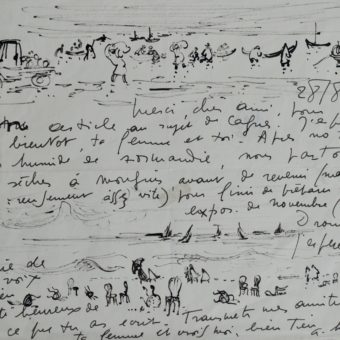 28/8
merci, cher ami, pour
ton article au sujet de Cagnes,
bientôt, ta femme et toi. Après no
humide de Normandie, nous parto
sécher à Mougins avant de revenir (ma
reusement assez vite) pour finir de prépare
expos. de novembre (
Drou
voix
heureux de
ce que tu as écrit. Transmets mes amitié
ta femme et crois moi, bien à